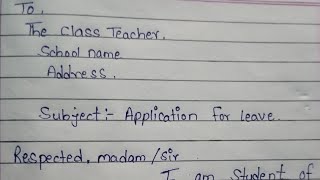 To,
The Class Teacher.
School name
Address.
Subject:- Application for leave.
Respected, madam/sir
I am student of